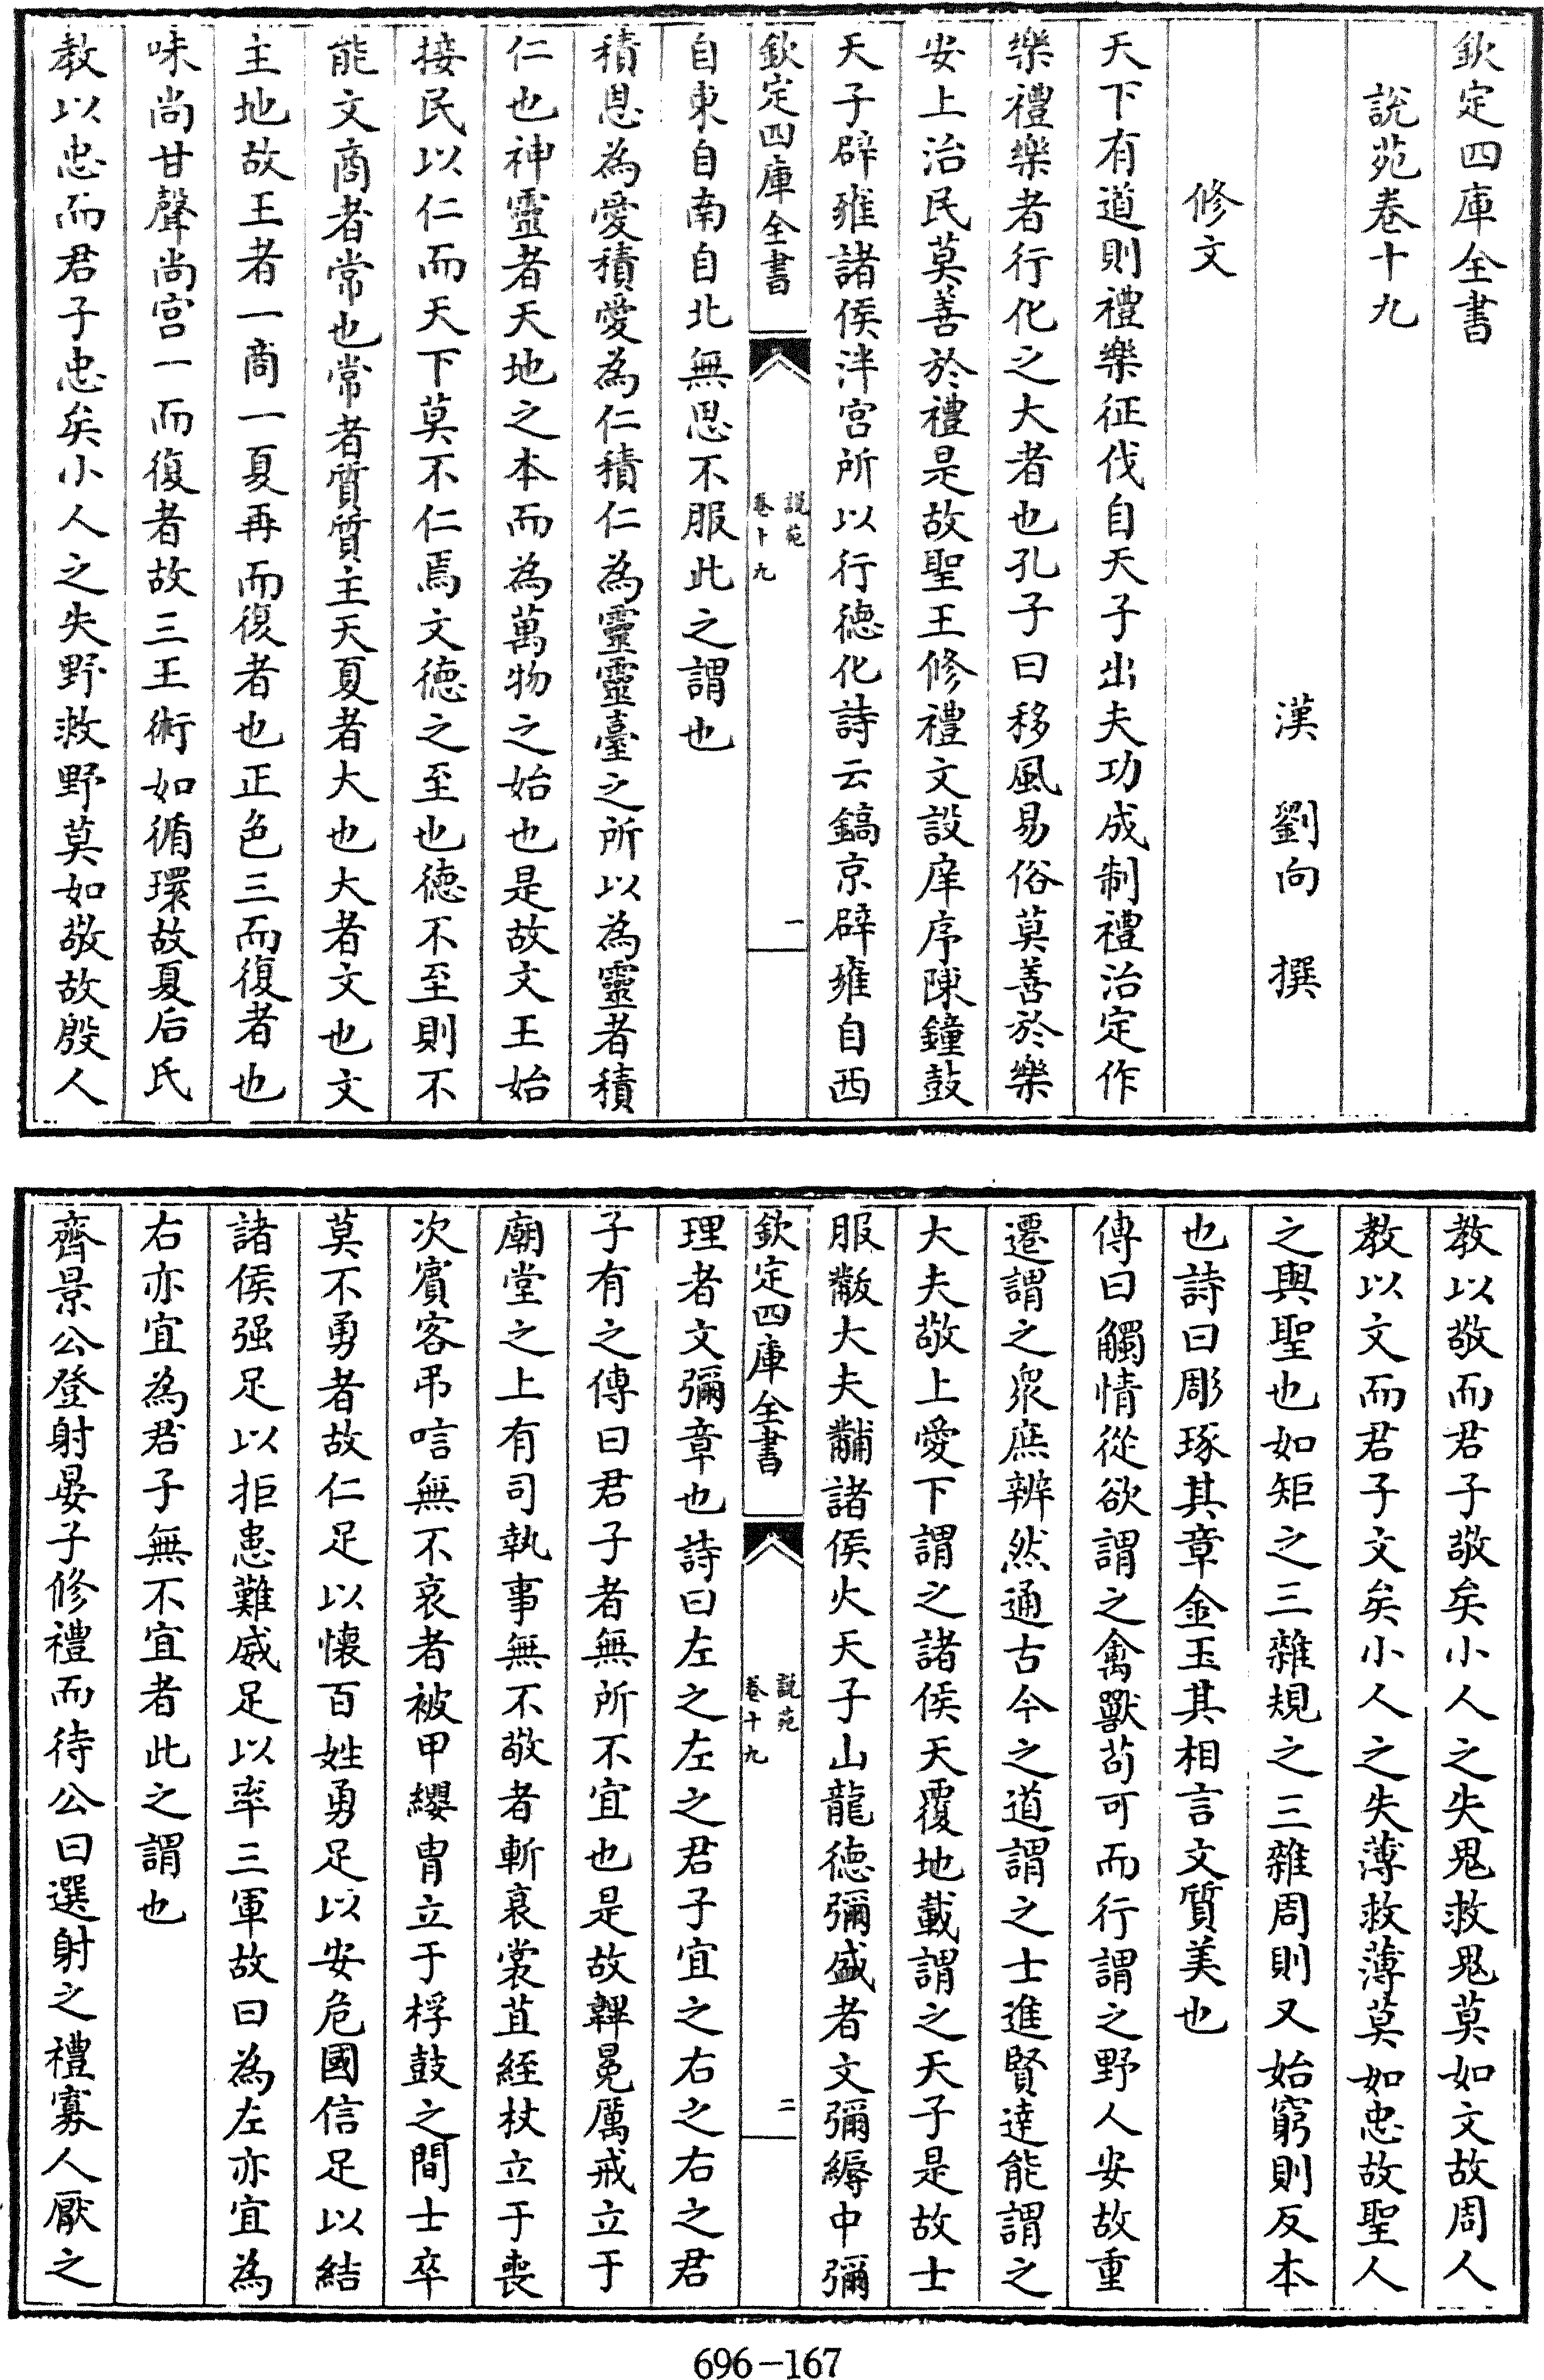 欽定四庫全書
說苑卷十九
漢　劉向　撰
修文
天下有道則禮樂征伐自天子出夫功成制禮治定作
樂禮樂者行化之大者也孔子曰移風易俗莫善於樂
安上治民莫善於禮是故聖王修禮文設庠序陳鐘鼓
天子辟雍諸侯泮宮所以行德化詩云鎬京辟雍自西
欽定四庫全書
說苑
卷十九
一
自東自南自北無思不服此之謂也
積恩為愛積愛為仁積仁為靈靈臺之所以為靈者積
仁也神靈者天地之本而為萬物之始也是故文王始
接民以仁而天下莫不仁焉文德之至也德不至則不
能文商者常也常者質質主天夏者大也大者文也文
主地故王者一商一夏再而復者也正色三而復者也
味尚甘聲尚宮一而復者故三王術如循環故夏后氏
教以忠而君子忠矣小人之失野救野莫如敬故殷人
教以敬而君子敬矣小人之失鬼救鬼莫如文故周人
教以文而君子文矣小人之失薄救薄莫如忠故聖人
之與聖也如矩之三雜規之三雜周則又始窮則反本
也詩曰彫琢其章金玉其相言文質美也
傳曰觸情從欲謂之禽獸苟可而行謂之野人安故重
遷謂之衆庶辨然通古今之道謂之士進賢達能謂之
大夫敬上愛下謂之諸侯天覆地載謂之天子是故士
服黻大夫黼諸侯火天子山龍德彌盛者文彌縟中彌
欽定四庫全書
說苑
卷十九
二
理者文彌章也詩曰左之左之君子宜之右之右之君
子有之傳曰君子者無所不宜也是故韠冕厲戒立于
廟堂之上有司執事無不敬者斬衰裳苴絰杖立于喪
次賓客弔唁無不哀者被甲纓胄立于桴鼓之間士卒
莫不勇者故仁足以懷百姓勇足以安危國信足以結
諸侯强足以拒患難威足以率三軍故曰為左亦宜為
右亦宜為君子無不宜者此之謂也
齊景公登射晏子修禮而待公曰選射之禮寡人厭之
696-167